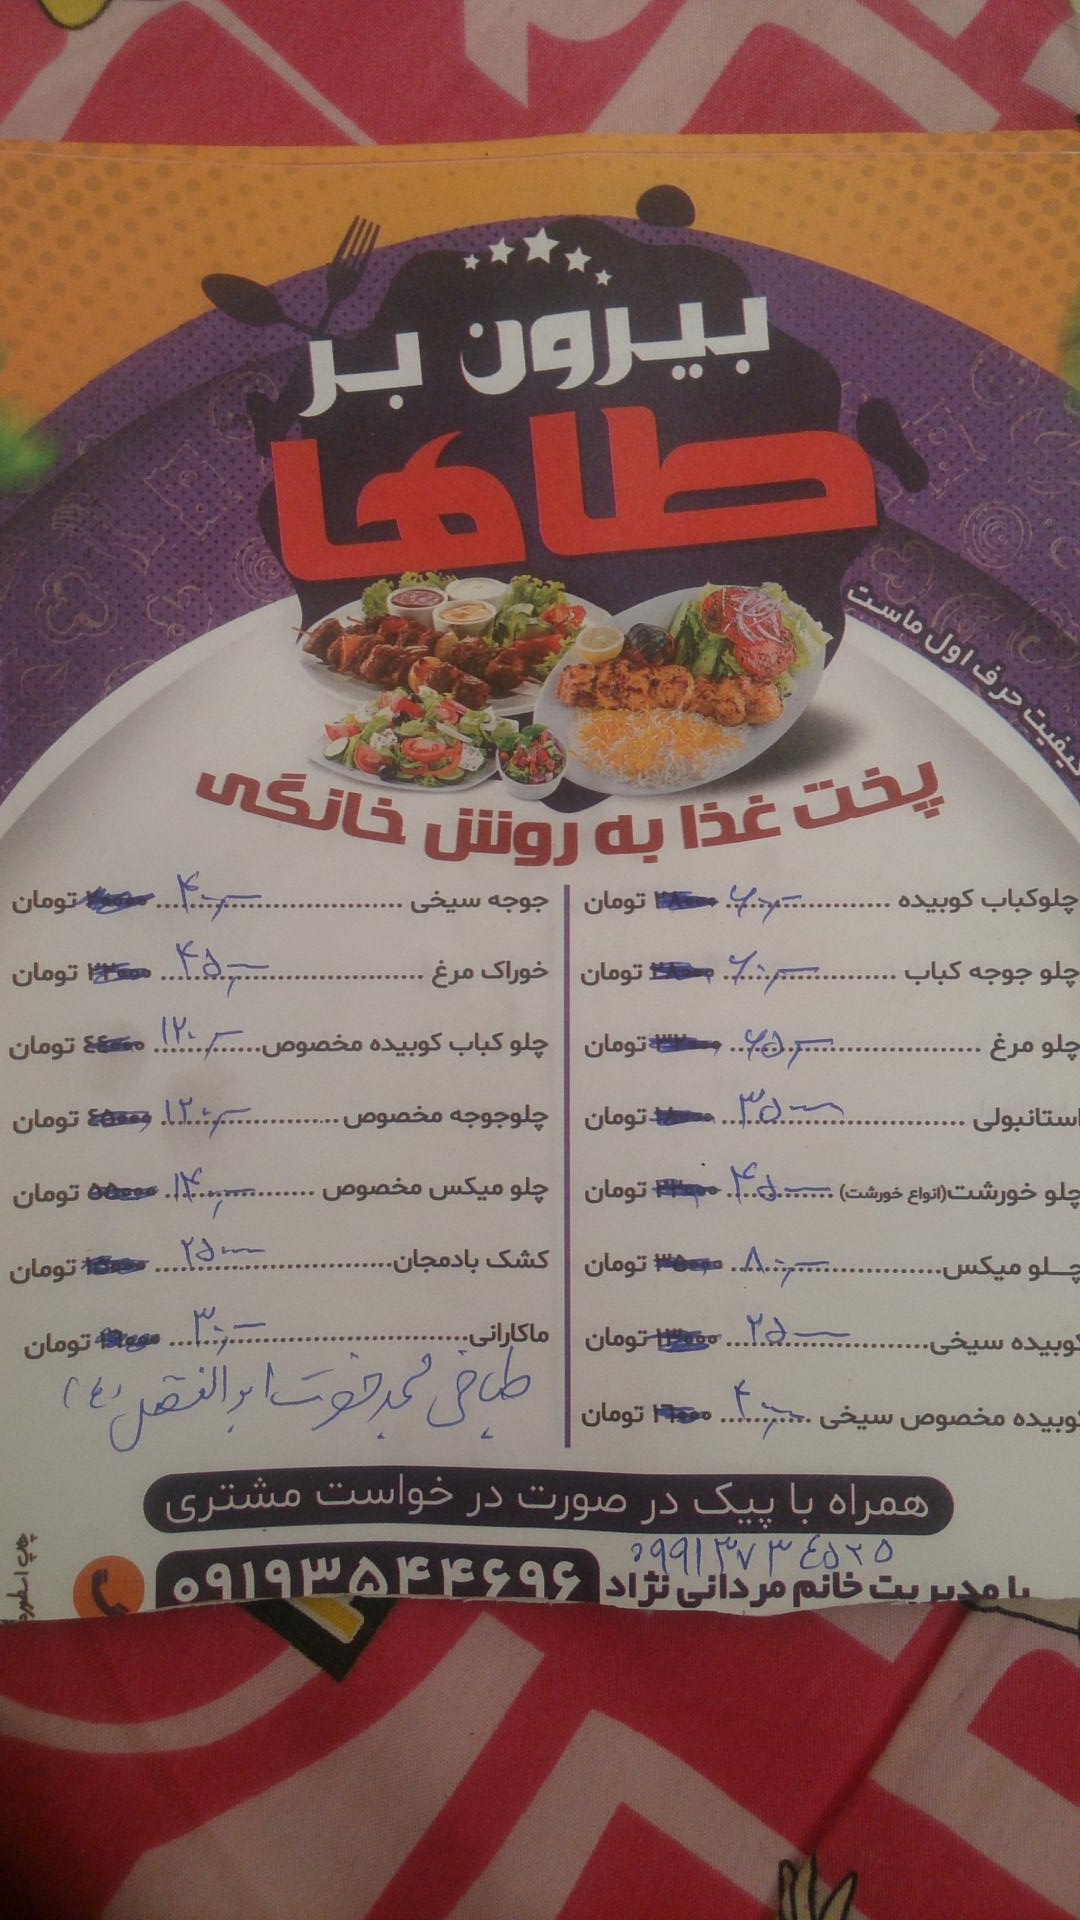 بیرون بر
طاها
کیفیت حرف اول ماست
پخت غذا به روش خانگی
چلوکباب کوبیده ........ ۶۰۰۰۰ ۲۸۰۰۰ تومان
چلو جوجه کباب ........ ۶۰۰۰۰ ۲۸۰۰۰ تومان
چلو مرغ ........ ۶۵۰۰۰ ۳۲۰۰۰ تومان
استانبولی ........ ۳۵۰۰۰ ۱۸۰۰۰ تومان
چلو خورشت(انواع خورشت) ........ ۴۵۰۰۰ ۲۲۰۰۰ تومان
چلو میکس ........ ۸۰۰۰۰ ۳۵۰۰۰ تومان
کوبیده سیخی ........ ۲۵۰۰۰ ۱۳۰۰۰ تومان
کوبیده مخصوص سیخی ........ ۴۰۰۰۰ ۲۶۰۰۰ تومان
جوجه سیخی ........ ۴۰۰۰۰ تومان
خوراک مرغ ........ ۴۵۰۰۰ ۲۲۰۰۰ تومان
چلو کباب کوبیده مخصوص ........ ۱۲۰۰۰۰ ۴۴۰۰۰ تومان
چلوجوجه مخصوص ........ ۱۲۰۰۰۰ ۴۵۰۰۰ تومان
چلو میکس مخصوص ........ ۱۴۰۰۰۰ ۵۵۰۰۰ تومان
کشک بادمجان ........ ۲۵۰۰۰ ۱۵۰۰۰ تومان
ماکارانی ........ ۳۰۰۰۰ تومان
طباخی محمد حضرت ابوالفضل (ع)
همراه با پیک در صورت در خواست مشتری
۰۹۹۱۳۷۳۴۵۲۵
با مدیریت خانم مردانی نژاد ۰۹۱۹۳۵۴۴۶۹۶